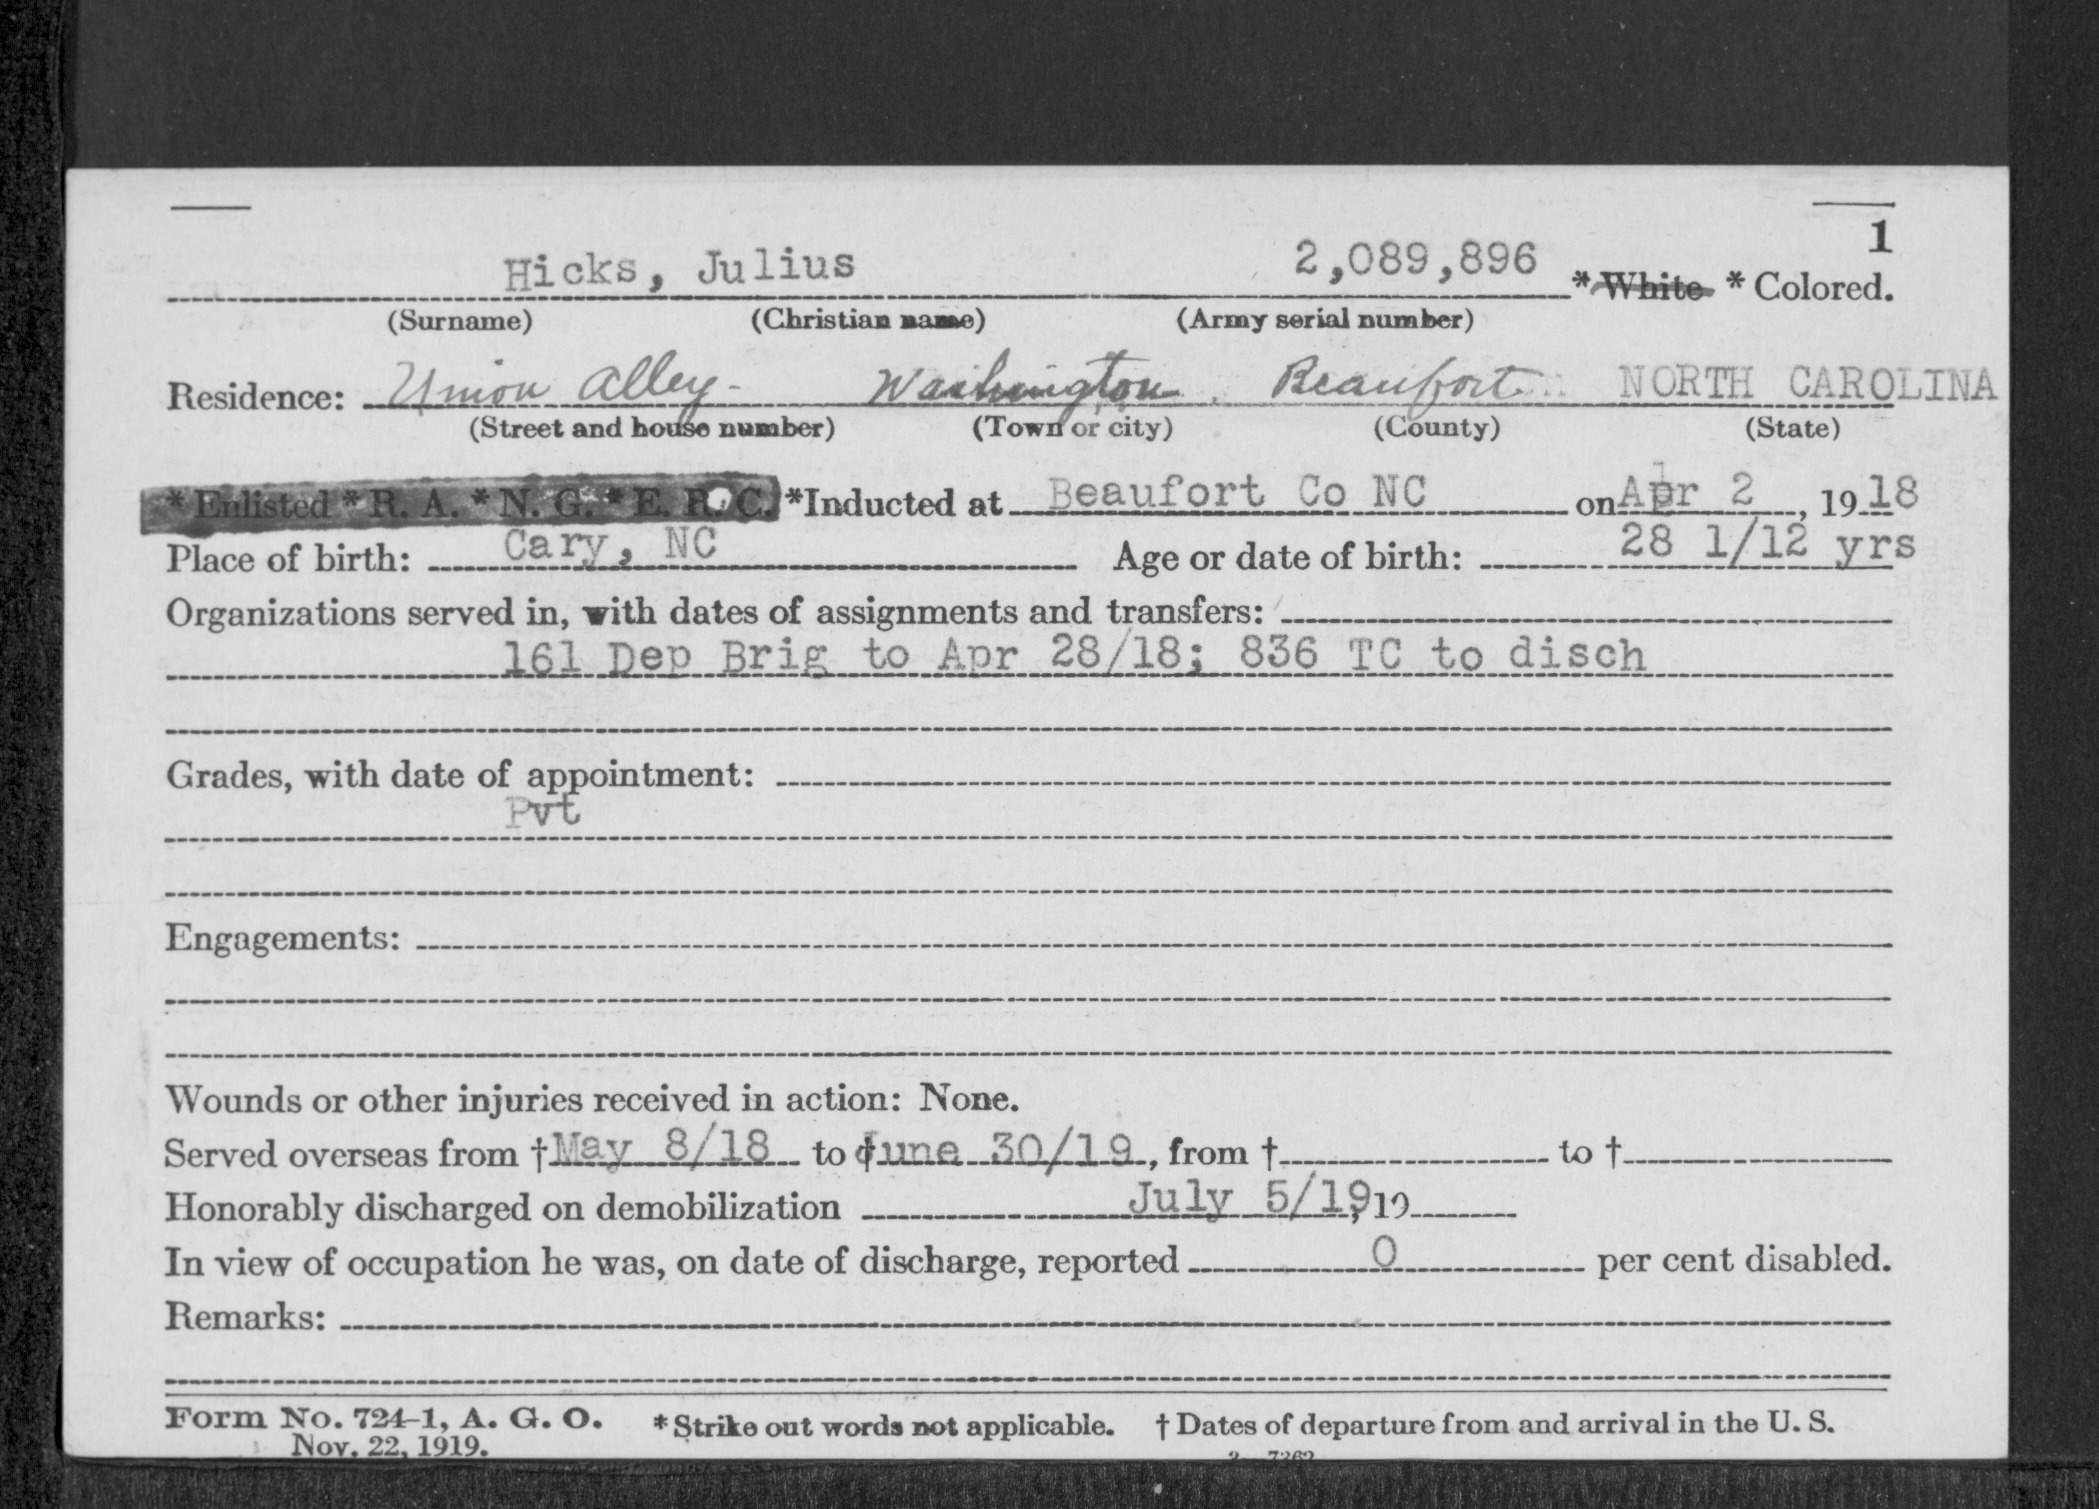 1
Hicks, Julius 2,089,896 *White *Colored.
(Surname) (Christian name) (Army serial number)
Residence: Union Alley- Washington Beaufort NORTH CAROLINA
(Street and house number) (Town or city) (County) (State)
*Enlisted *R. A. *N. G. *E. R. C. *Inducted at Beaufort Co NC on Apr 2, 1918
Place of birth: Cary, NC Age or date of birth: 28 1/12 yrs
Organizations served in, with dates of assignments and transfers:
161 Dep Brig to Apr 28/18; 836 TC to disch
Grades, with date of appointment:
Pvt
Engagements:
Wounds or other injuries received in action: None.
Served overseas from †May 8/18 to †June 30/19, from † to †
Honorably discharged on demobilization July 5/19, 19
In view of occupation he was, on date of discharge, reported 0 per cent disabled.
Remarks:
Form No. 724-1, A. G. O. *Strike out words not applicable. †Dates of departure from and arrival in the U. S.
Nov. 22, 1919.